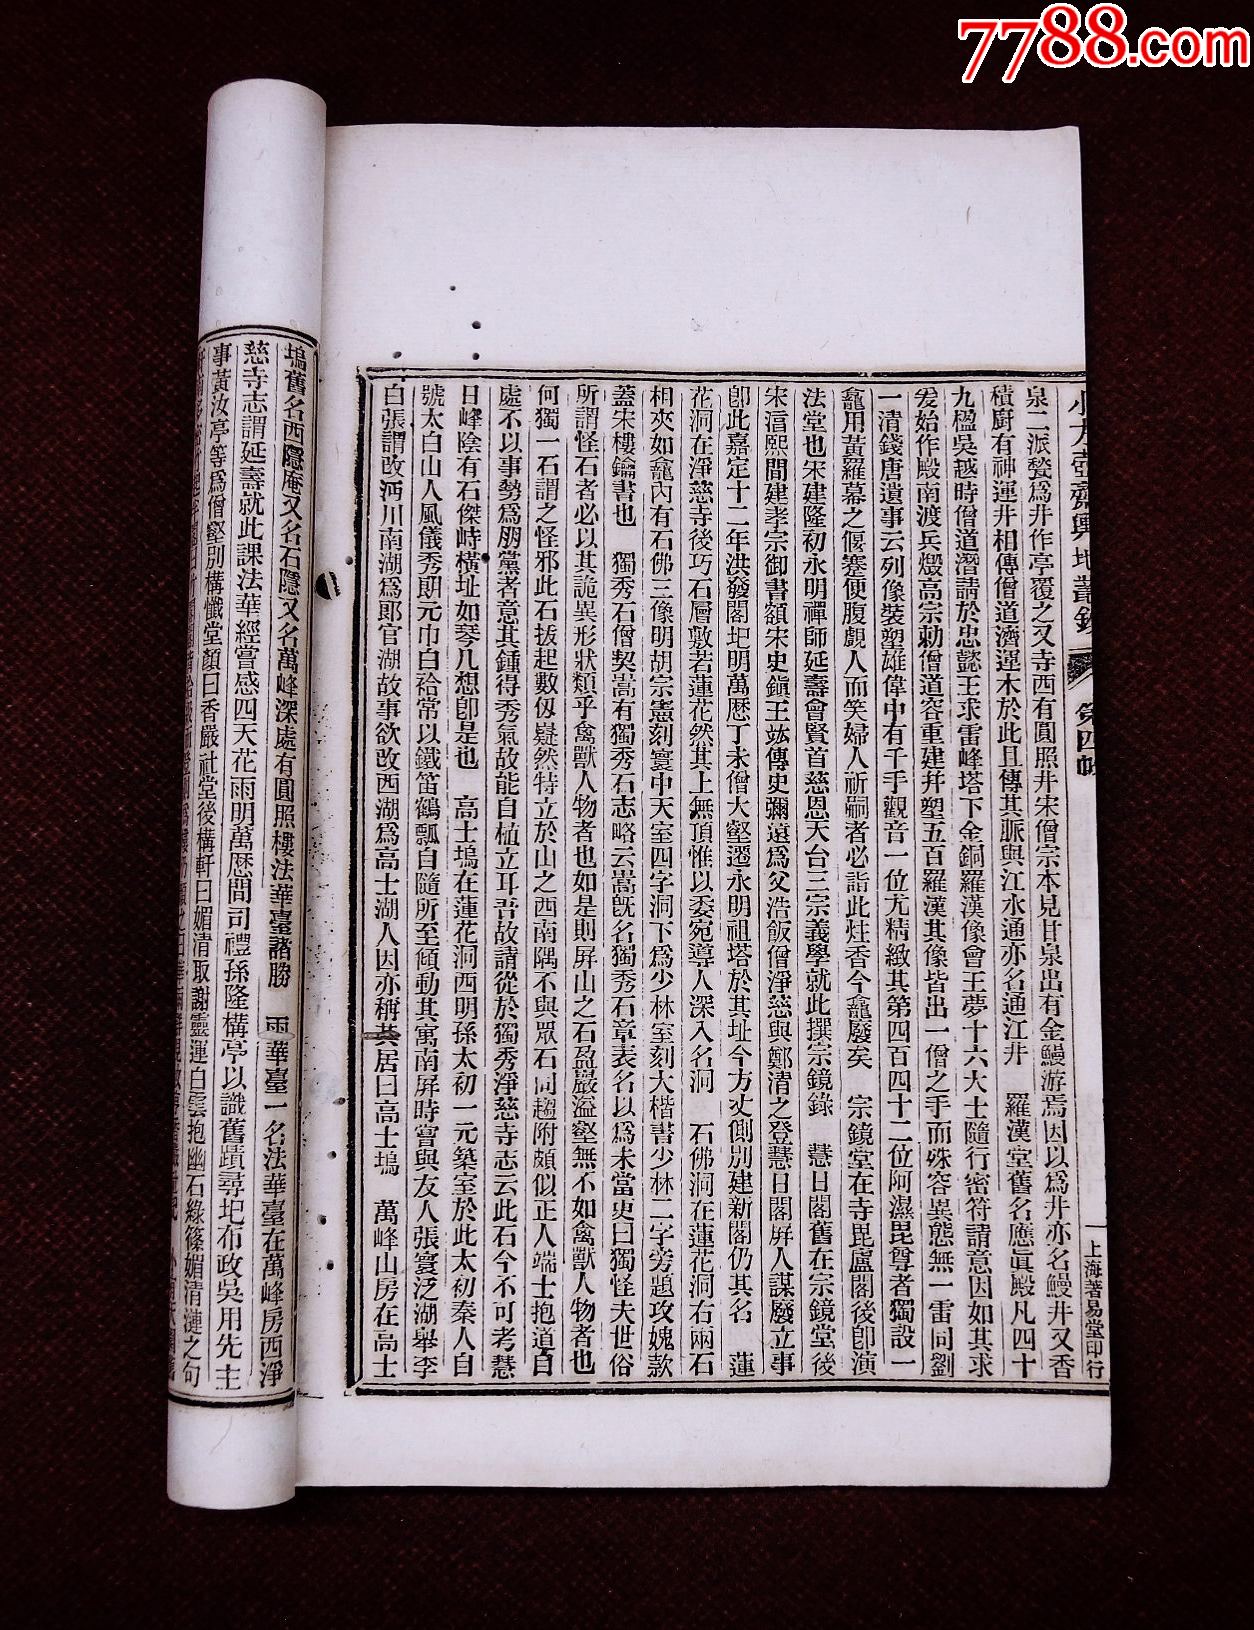 7788.com
小方壺齋輿地叢鈔
第四帙
一
上海著易堂印行
泉二派甃爲井作亭覆之又寺西有圓照井宋僧宗本見甘泉出有金鰻游焉因以爲井亦名鰻井又香
積廚有神運井相傳僧道濟運木於此且傳其脈與江水通亦名通江井　羅漢堂舊名應眞殿凡四十
九楹吳越時僧道潛請於忠懿王求雷峰塔下金銅羅漢像會王夢十六大士隨行密符請意因如其求
爰始作殿南渡兵燬高宗勅僧道容重建幷塑五百羅漢其像皆出一僧之手而殊容異態無一雷同劉
一清錢唐遺事云列像裝塑雄偉中有千手觀音一位尤精緻其第四百四十二位阿濕毘尊者獨設一
龕用黃羅幕之偃蹇便腹覷人而笑婦人祈嗣者必詣此炷香今龕廢矣　宗鏡堂在寺毘盧閣後卽演
法堂也宋建隆初永明禪師延壽會賢首慈恩天台三宗義學就此撰宗鏡錄　慧日閣舊在宗鏡堂後
宋淳熙間建孝宗御書額宋史鎭王竑傳史彌遠爲父浩飯僧淨慈與鄭清之登慧日閣屛人謀廢立事
卽此嘉定十二年洪發閣圮明萬歷丁未僧大壑遷永明祖塔於其址今方丈側別建新閣仍其名　蓮
花洞在淨慈寺後巧石層敷若蓮花然其上無頂惟以委宛導人深入名洞　石佛洞在蓮花洞右兩石
相夾如龕內有石佛三像明胡宗憲刻寰中天室四字洞下爲少林室刻大楷書少林二字旁題攻媿款
蓋宋樓鑰書也　獨秀石僧契嵩有獨秀石志略云嵩旣名獨秀石章表名以爲未當更曰獨怪夫世俗
所謂怪石者必以其詭異形狀類乎禽獸人物者也如是則屛山之石盈巖溢壑無不如禽獸人物者也
何獨一石謂之怪邪此石拔起數仭嶷然特立於山之西南隅不與眾石同趨附頗似正人端士抱道自
處不以事勢爲朋黨者意其鍾得秀氣故能自植立耳吾故請從於獨秀淨慈寺志云此石今不可考慧
日峰陰有石傑峙橫址如琴几想卽是也　高士塢在蓮花洞西明孫太初一元築室於此太初秦人自
號太白山人風儀秀朗元巾白袷常以鐵笛鶴瓢自隨所至傾動其寓南屛時嘗與友人張寰泛湖舉李
白張謂改沔川南湖爲郞官湖故事欲改西湖爲高士湖人因亦稱其居曰高士塢　萬峰山房在高士
塢舊名西隱庵又名石隱又名萬峰深處有圓照樓法華臺諸勝　雨華臺一名法華臺在萬峰房西淨
慈寺志謂延壽就此課法華經嘗感四天花雨明萬歷間司禮孫隆構亭以識舊蹟尋圮布政吳用先主
事黃汝亭等爲僧壑別構懺堂顏曰香嚴社堂後構軒曰媚清取謝靈運白雲抱幽石綠篠媚清漣之句